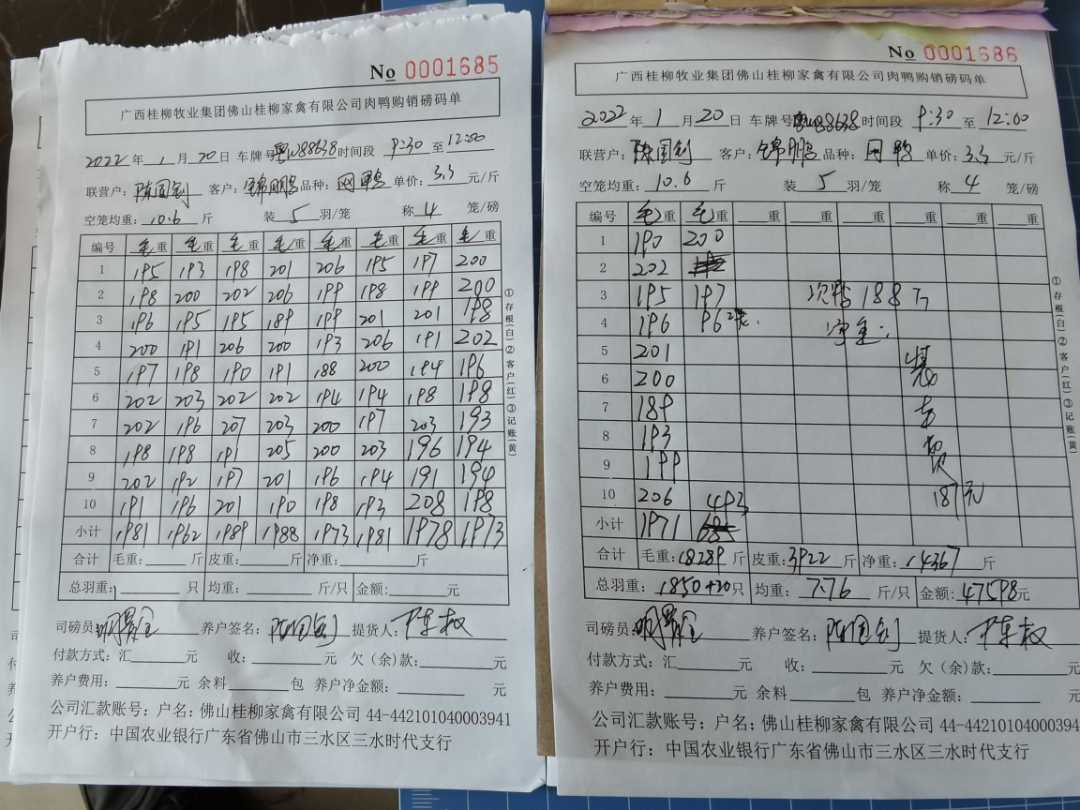 No 0001685
广西桂柳牧业集团佛山桂柳家禽有限公司肉鸭购销磅码单
2022年1月20日 车牌号 粤W88638 时间段 9:30 至 12:00
联营户：陈国剑 客户：锦鹏 品种：网鸭 单价：3.3元/斤
空笼均重：10.6斤 装5羽/笼 称4笼/磅
编号 毛重 毛重 毛重 毛重 毛重 毛重 毛重 毛重
1 195 193 198 201 206 195 197 200
2 198 200 202 206 199 198 199 200
3 196 195 195 189 199 201 201 198
4 200 191 206 200 193 206 191 202
5 197 198 190 191 188 200 194 196
6 202 203 202 202 194 194 198 198
7 202 196 207 203 200 197 203 193
8 198 198 191 205 200 203 196 194
9 202 192 197 201 196 194 191 194
10 191 196 201 190 198 193 208 198
小计 1981 1962 1989 1988 1973 1981 1978 1973
合计 毛重：斤 皮重：斤 净重：斤
总羽重：只 均重：斤/只 金额：元
司磅员： 养户签名：陈国剑 提货人：陈权
付款方式：汇元 收：元 欠（余）款：元
养户费用：元 余料包 养户净金额：元
公司汇款账号：户名：佛山桂柳家禽有限公司 44-442101040003941
开户行：中国农业银行广东省佛山市三水区三水时代支行
①存根（白）②客户（红）③记账（黄）
No 0001686
广西桂柳牧业集团佛山桂柳家禽有限公司肉鸭购销磅码单
2022年1月20日 车牌号 粤W88638 时间段 9:30 至 12:00
联营户：陈国剑 客户：锦鹏 品种：网鸭 单价：3.3元/斤
空笼均重：10.6斤 装5羽/笼 称4笼/磅
编号 毛重 毛重 重 重 重 重 重 重
1 190 200
2 202
3 195 197 次鸭188斤
4 196 96 2笼.
5 201
6 200
7 189
8 193
9 199 187元
10 206 493
小计 1971
合计 毛重：18289斤 皮重：3922斤 净重：14367斤
总羽重：1850+20只 均重：7.76斤/只 金额：47598元
司磅员： 养户签名：陈国剑 提货人：陈权
付款方式：汇元 收：元 欠（余）款：元
养户费用：元 余料包 养户净金额：元
公司汇款账号：户名：佛山桂柳家禽有限公司 44-442101040003941
开户行：中国农业银行广东省佛山市三水区三水时代支行
①存根（白）②客户（红）③记账（黄）